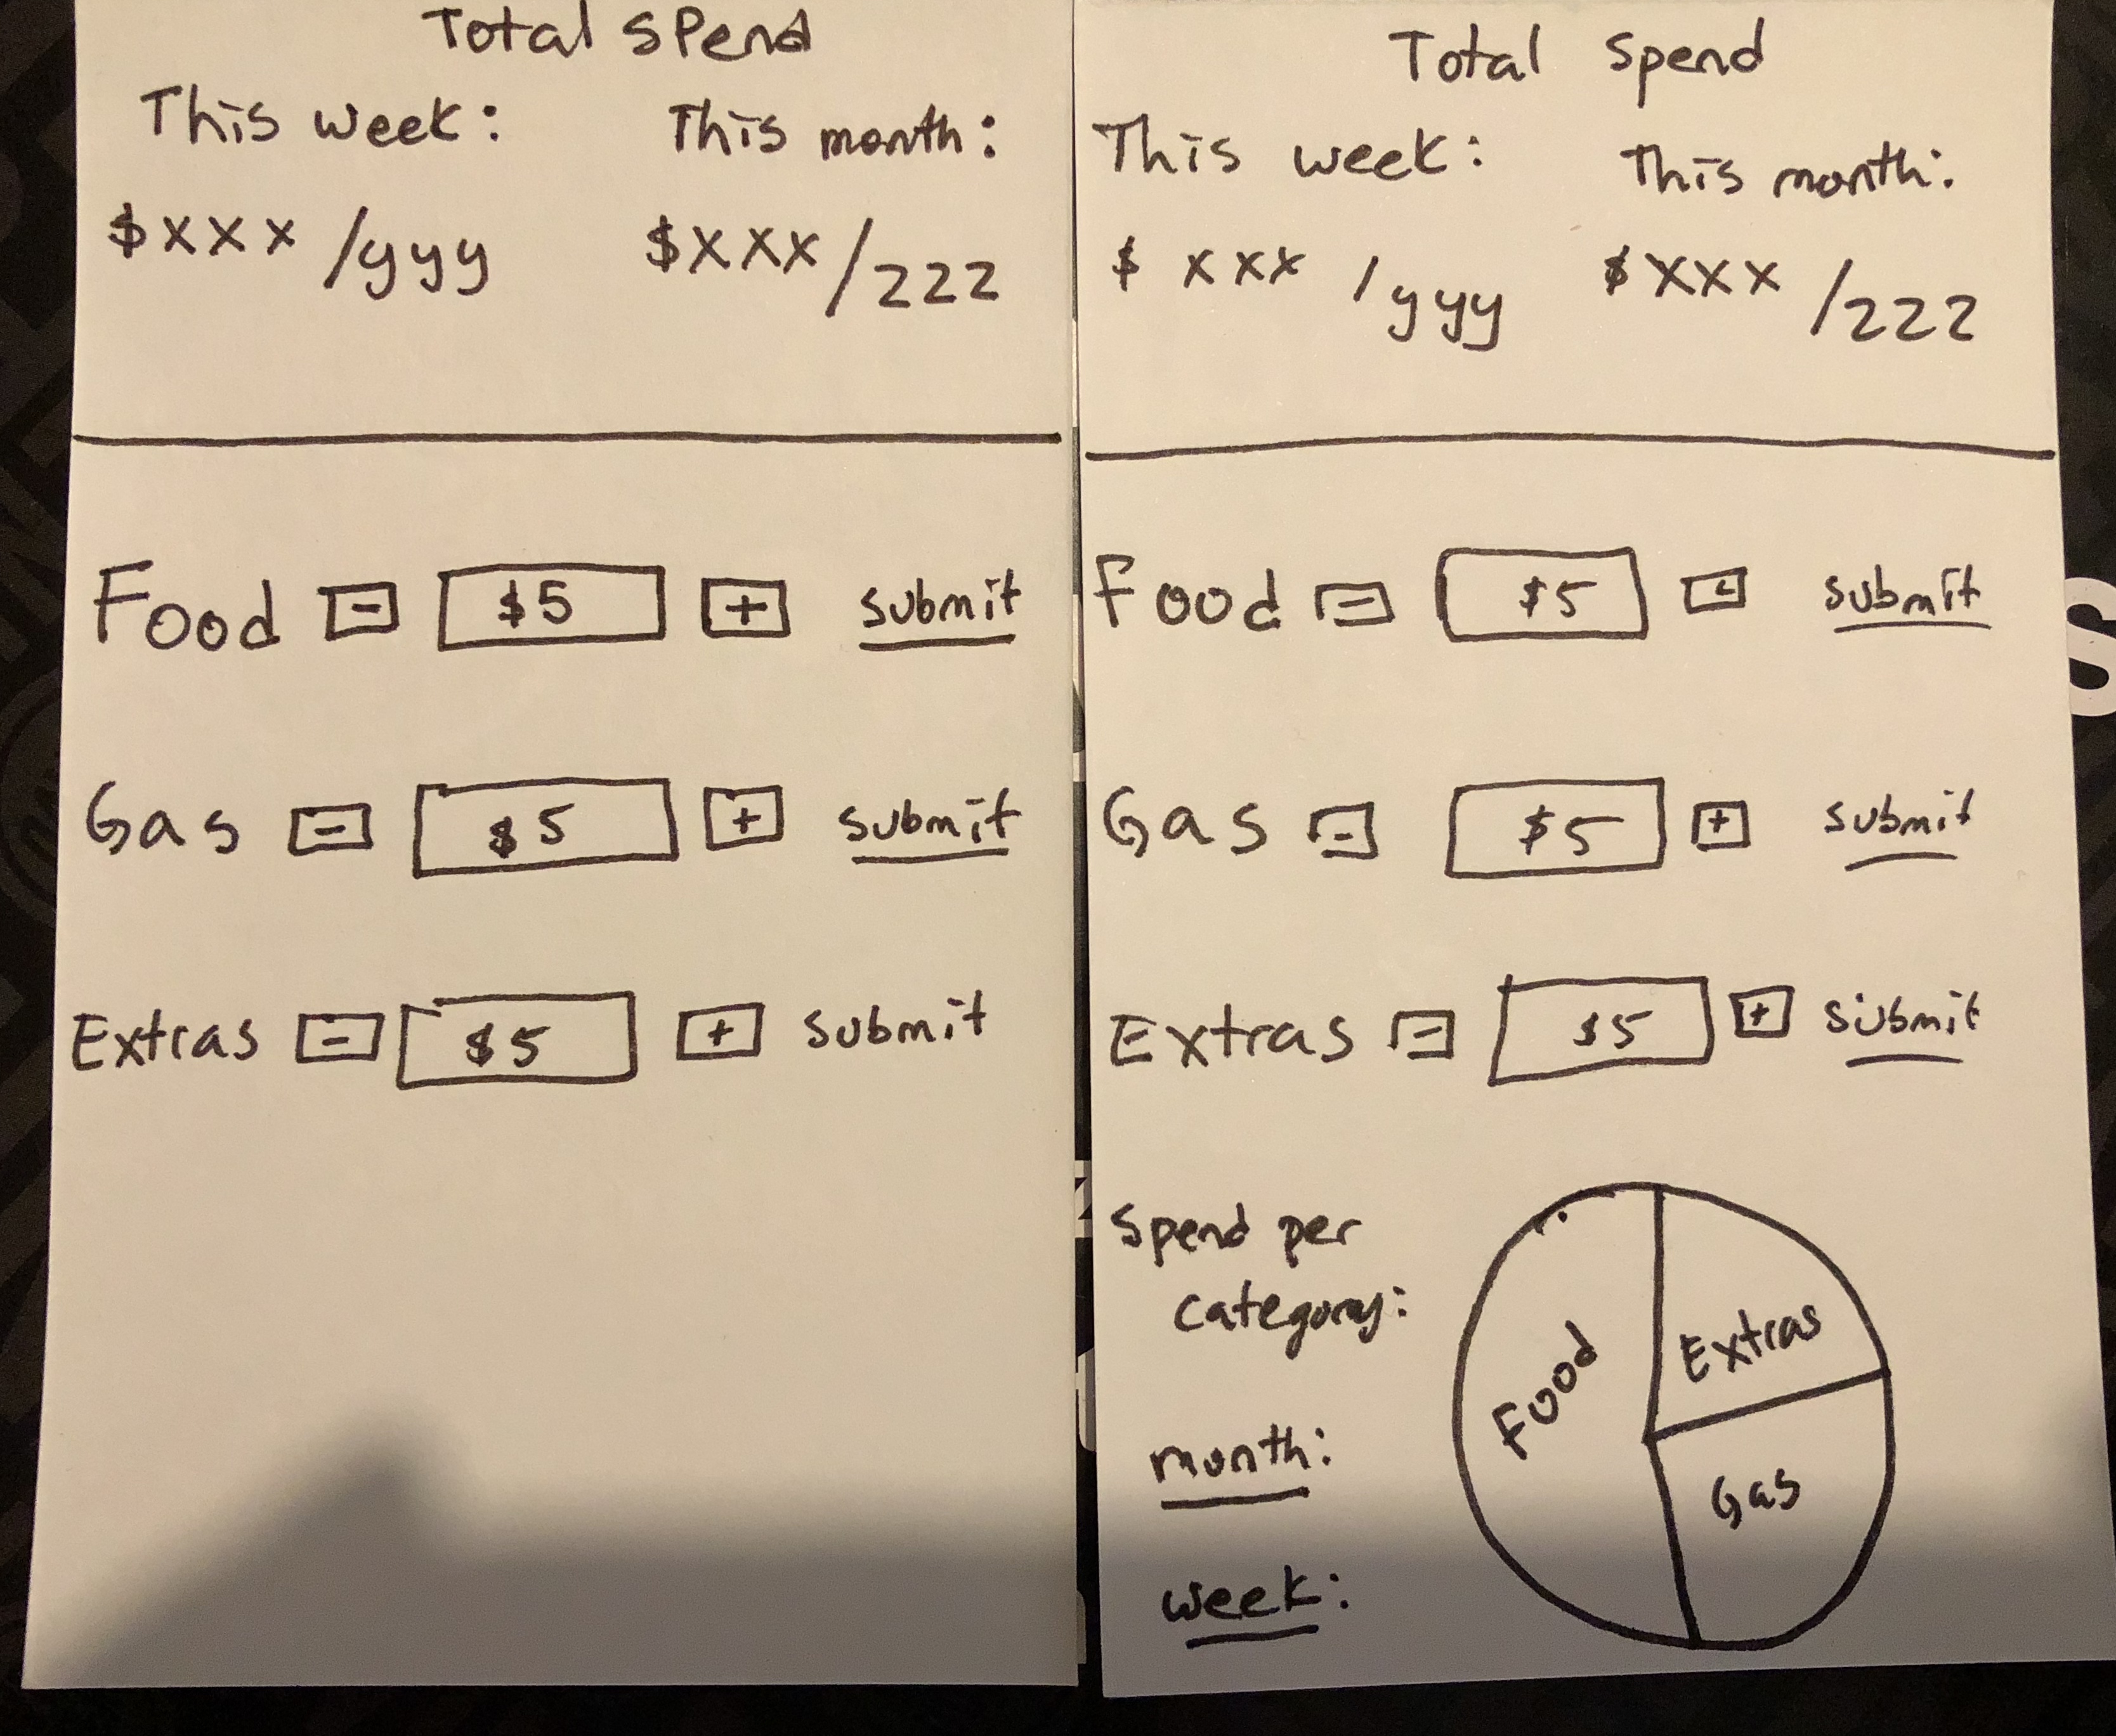 Total Spend
This week: This month:
$xxx /yyy $xxx/zzz
Food - $5 + submit
Gas - $5 + submit
Extras - $5 + submit
Total Spend
This week: This month:
$ xxx /yyy $xxx /zzz
Food - $5 + submit
Gas - $5 + submit
Extras - $5 + submit
Spend per
category:
month:
week:
Food
Extras
Gas
S